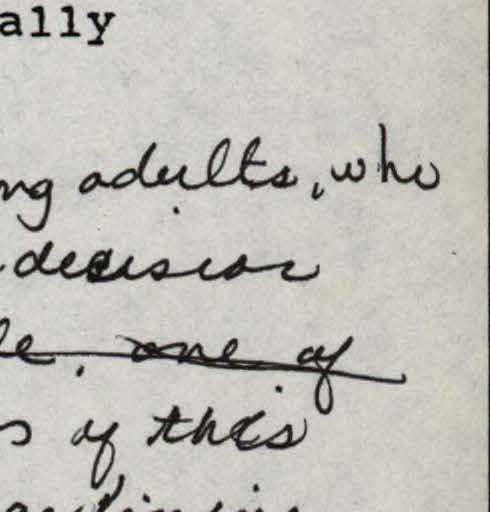 ally
ng adults, who
decision
le, one of
s of this